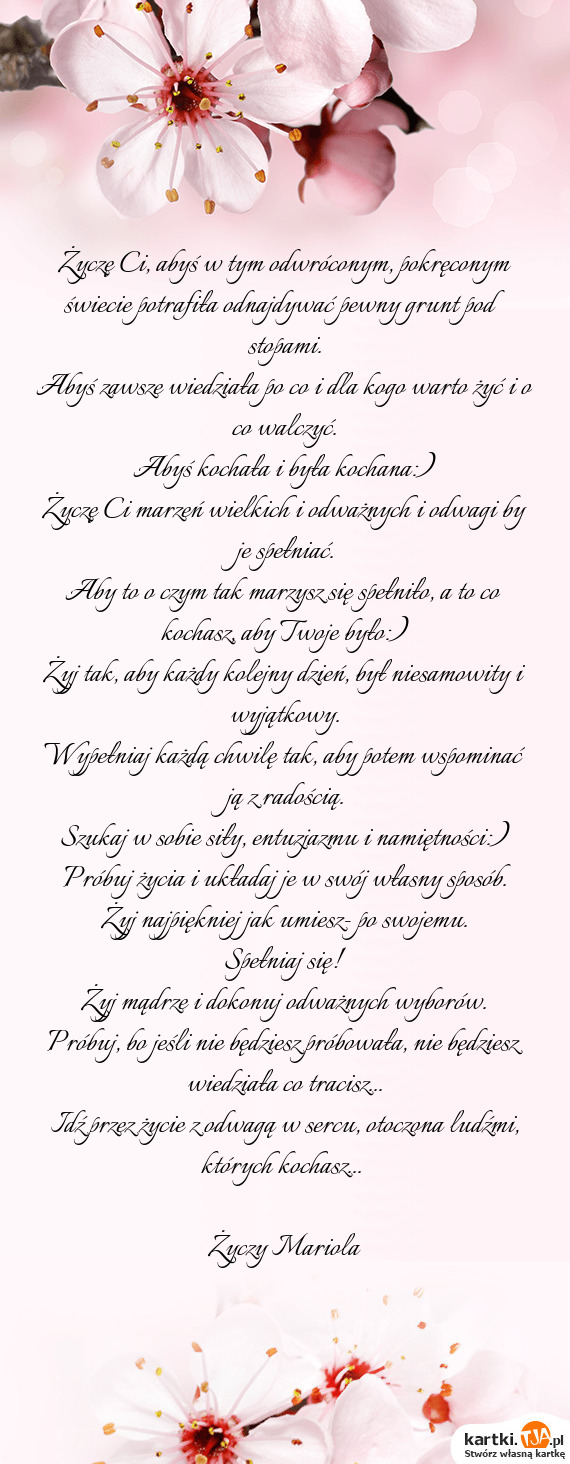 Życzę Ci, abyś w tym odwróconym, pokręconym
świecie potrafiła odnajdywać pewny grunt pod
stopami.
Abyś zawsze wiedziała po co i dla kogo warto żyć i o
co walczyć.
Abyś kochała i była kochana:)
Życzę Ci marzeń wielkich i odważnych i odwagi by
je spełniać.
Aby to o czym tak marzysz się spełniło, a to co
kochasz, aby Twoje było:)
Żyj tak, aby każdy kolejny dzień, był niesamowity i
wyjątkowy.
Wypełniaj każdą chwilę tak, aby potem wspominać
ją z radością.
Szukaj w sobie siły, entuzjazmu i namiętności:)
Próbuj życia i układaj je w swój własny sposób.
Żyj najpiękniej jak umiesz- po swojemu.
Spełniaj się!
Żyj mądrze i dokonuj odważnych wyborów.
Próbuj, bo jeśli nie będziesz próbowała, nie będziesz
wiedziała co tracisz...
Idź przez życie z odwagą w sercu, otoczona ludźmi,
których kochasz...
Życzy Mariola
kartki.TJA.pl
Stwórz własną kartkę